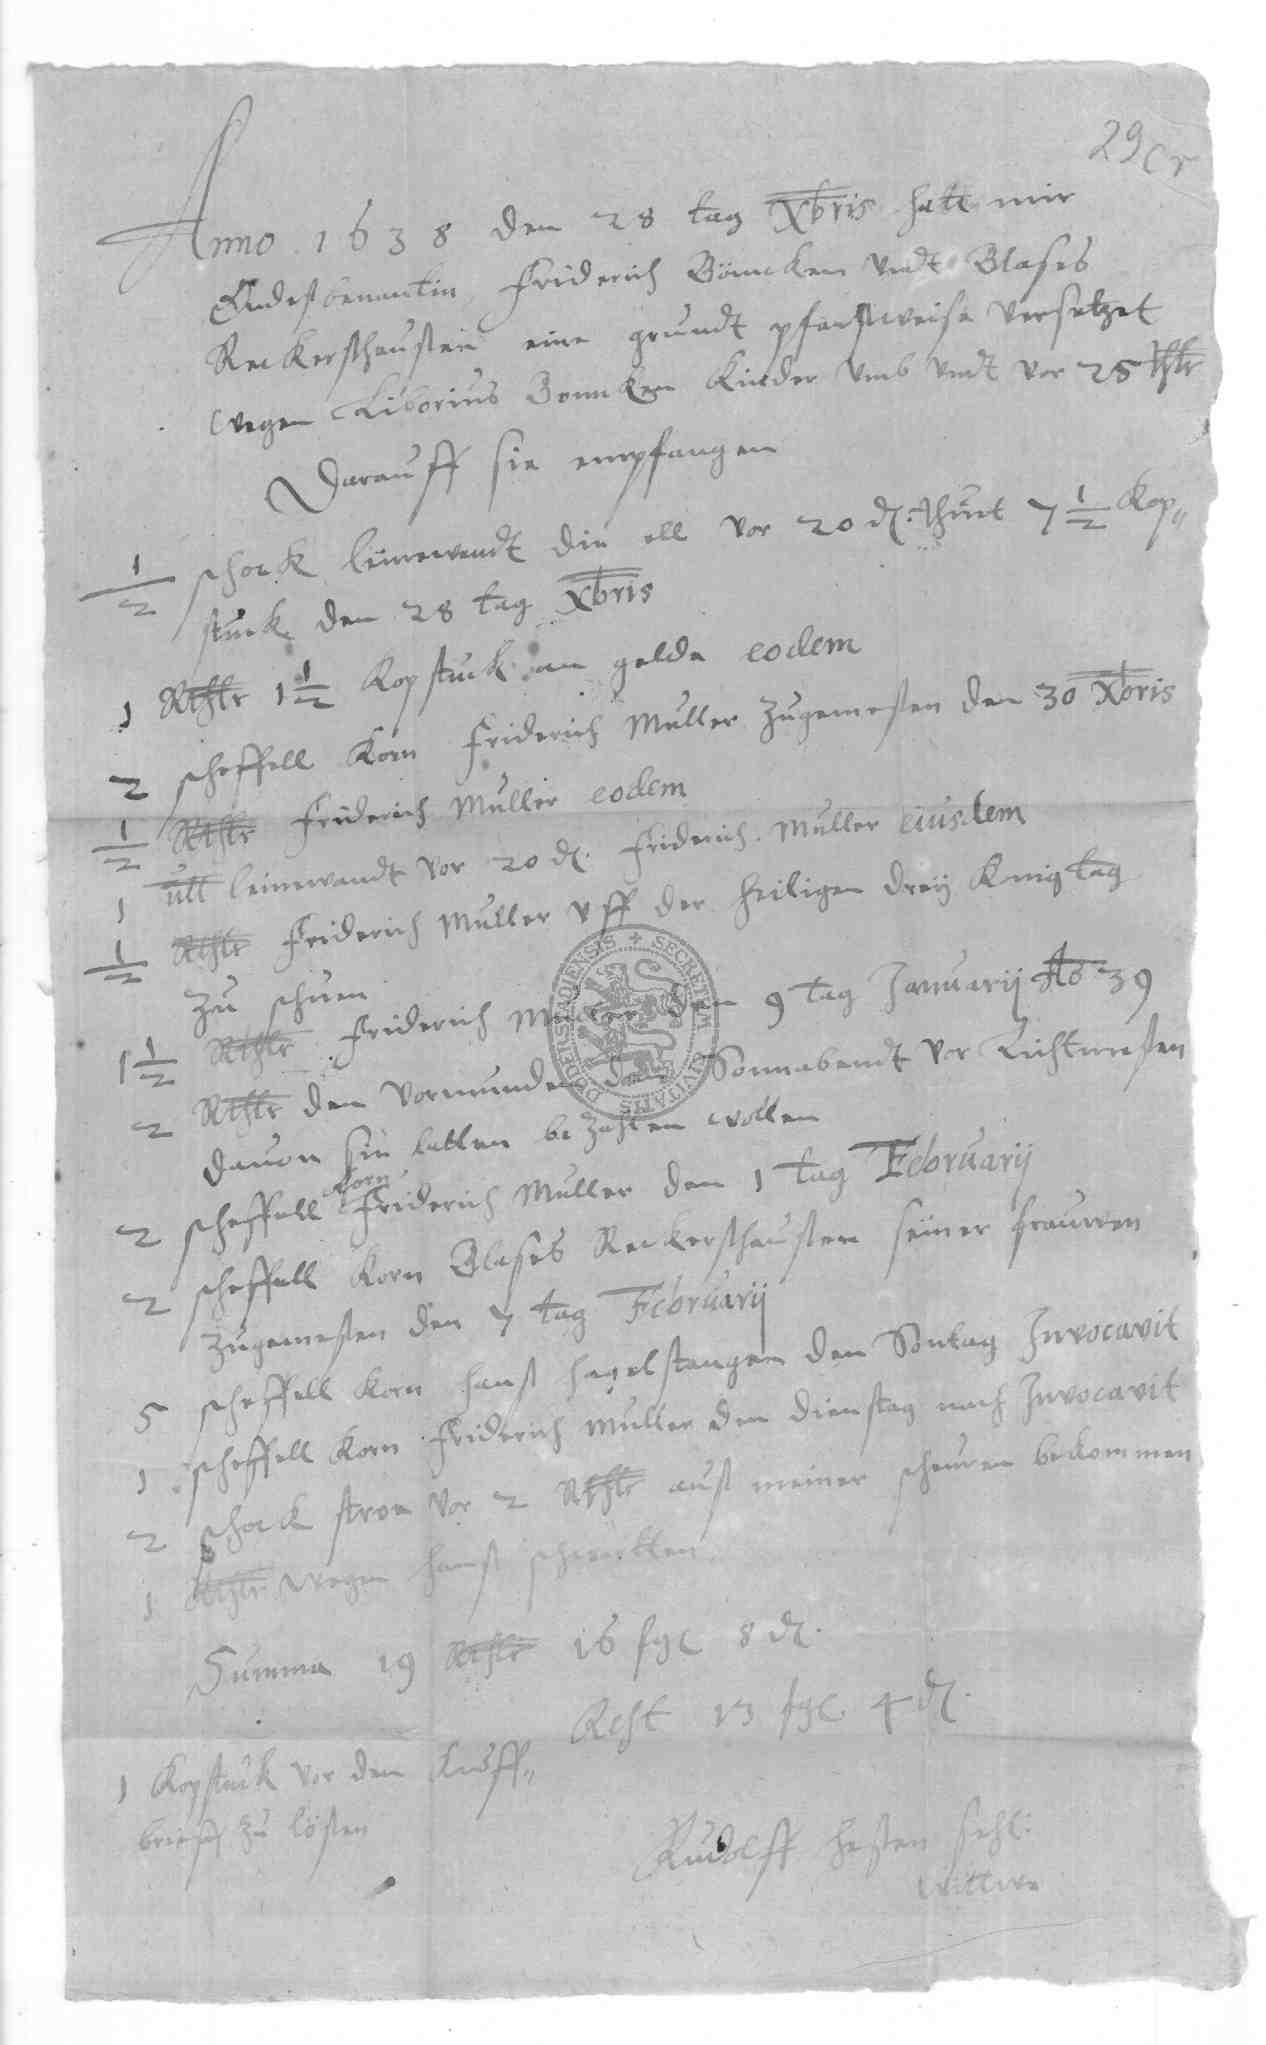 29cr
Anno 1638 den 28 tag Xbris hatt mir
Endeßbenantin Friderich Böncken vndt Blases
Reckerßhausten eine grundt pfandtweise versetzet
wegen Liborius Boncken Kinder vmb vndt vor 25 Rthlr
Darauff sie empfangen
1/2 schock leinewandt die ell vor 20 d. thut 7 1/2 Kop„
stuck den 28 tag Xbris
1 Rthlr 1 1/2 Kopstuck an gelde eodem
2 scheffell Korn Friderich Muller zugemeßen den 30 Xbris
1/2 Rthlr Friderich Muller eodem
1 ell leinewandt vor 20 d. Friderich Muller eiusdem
1/2 Rthlr Friderich Muller vff der heiligen dreÿ Knig tag
zu schuen
1 1/2 Rthlr Friderich Muller den 9 tag Januarij Ao 39
DUDERSTADIENSIS SECRETUM CIVITATIS
2 Rthlr den vormunden den Sonnabendt vor Lichtmeßen
dauon sie latten bezahlen wollen
2 scheffell Korn Friderich Muller den 1 tag Februarij
2 scheffell Korn Blases Reckerßhausten seiner frauwen
zugemeßen den 7 tag Februarij
5 scheffell Korn hanß hagelstangen den Sontag Invocavit
1 scheffell Korn Friderich Muller den dienstag nach Invocavit
2 schock stroe vor 2 Rthlr auß meiner scheuren bekommen
1 Rthlr wegen hanß
Summa 19 Rthlr 16 sgl 8 d.
Rest 13 sgl 4 d.
1 Kopstuck vor den
brieff zu lößen
Rudolff heßen sehl:
wittwe